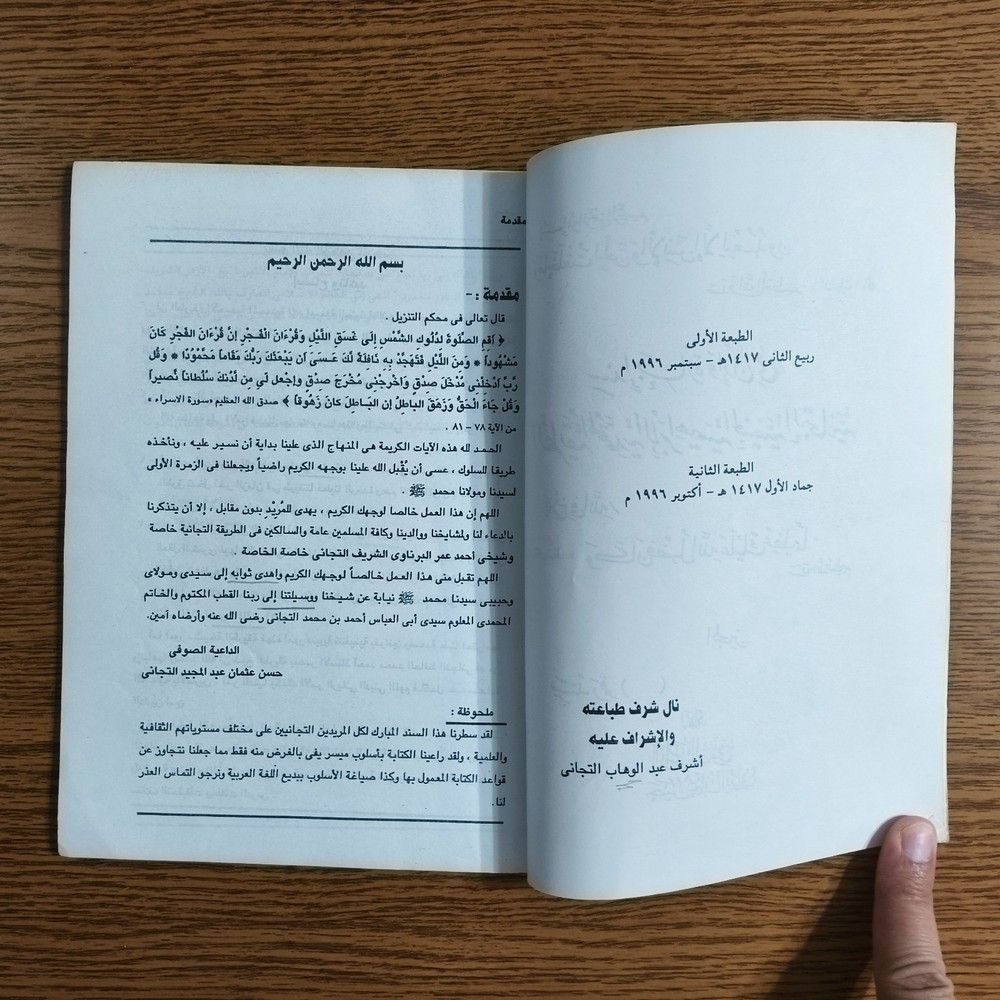 الطبعة الأولى
ربيع الثانى ١٤١٧هـ – سبتمبر ١٩٩٦ م
الطبعة الثانية
جماد الأول ١٤١٧ هـ – أكتوبر ١٩٩٦ م
نال شرف طباعته
والإشراف عليه
أشرف عبد الوهاب التجانى
مقدمة
بسم الله الرحمن الرحيم
مقدمة : -
قال تعالى فى محكم التنزيل .
﴿ أَقِمِ الصَّلَوةَ لدُلُوكِ الشَّمْسِ إِلَى غَسَقِ اللَّيْلِ وَقُرْءَانَ الْفَـجْرِ إنَّ قُرْءَانَ الفَجْرِ كَانَ
مَشْهُوداً * وَمِنَ اللَّيْلِ فَتَهَجَّدْ بِهِ نَافِلَةً لَكَ عَسَى أَن يَبْعَثَكَ رَبُّكَ مَقَاماً مَحْمُوْدًا * وَقُل
رَّبِّ أَدْخِلْنِى مُدْخَلَ صدْقٍ وَأَخْرِجْنِى مُخْرَجَ صدْقٍ وإجْعل لِي مِن لَدُنكَ سُلْطَاناً نَّصيراً
وَقُلْ جَاءَ الْحَقُّ وَزَهَقَ الباطِلُ إن البَـاطِلَ كَانَ زَهُوقاً ﴾ صدق الله العظيم «سورة الاسراء »
من الآية ٧٨ – ٨١ .
الحـمـد لله هذه الآيات الكريمة هى المنهاج الذى علينا بداية أن نسـير عليه ، ونأخذه
طريقا للسلوك ، عسى أن يُقْبل الله علينا بوجهه الكريم راضياً ويجعلنا فى الزمرة الأولى
لسيدنا ومولانا محمد ﷺ .
اللهم إن هذا العمل خالصا لوجهك الكريم ، يهدى للمُرِيْدِ بدون مقابل ، إلا أن يتذكرنا
بالدعاء لنا ولمشايخنا ووالدينا وكافة المسلمين عامة والسالكين فى الطريقة التجانية خاصة
وشيخى أحمد عمر البرناوى الشريف التجانى خاصة الخاصة .
اللهم تقبل منى هذا العمل خالصـاً لوجهـك الكريم وأهدى ثوابه إلى سيـدى ومـولاى
وحبيبى سيدنا محمد ﷺ نيابة عن شـيـخنا ووسيلتنا إلى ربنا القطب المكتوم والخاتم
المحمدى المعلوم سيدى أبى العباس أحمد بن محمد التجانى رضى الله عنه وأرضاه آمين.
الداعية الصوفى
حسن عثمان عبد المجيد التجانى
ملحوظة :
لقد سطرنا هذا السند المبارك لكل المريدين التجانيين على مختلف مستوياتهم الثقافية
والعلمية ، ولقد راعينا الكتابة بأسلوب ميسر يفى بالغرض منه فقط مما جعلنا نتجاوز عن
قواعد الكتابة المعمول بها وكذا صياغة الأسلوب ببديع اللغة العربية ونرجو التماس العذر
لنا.